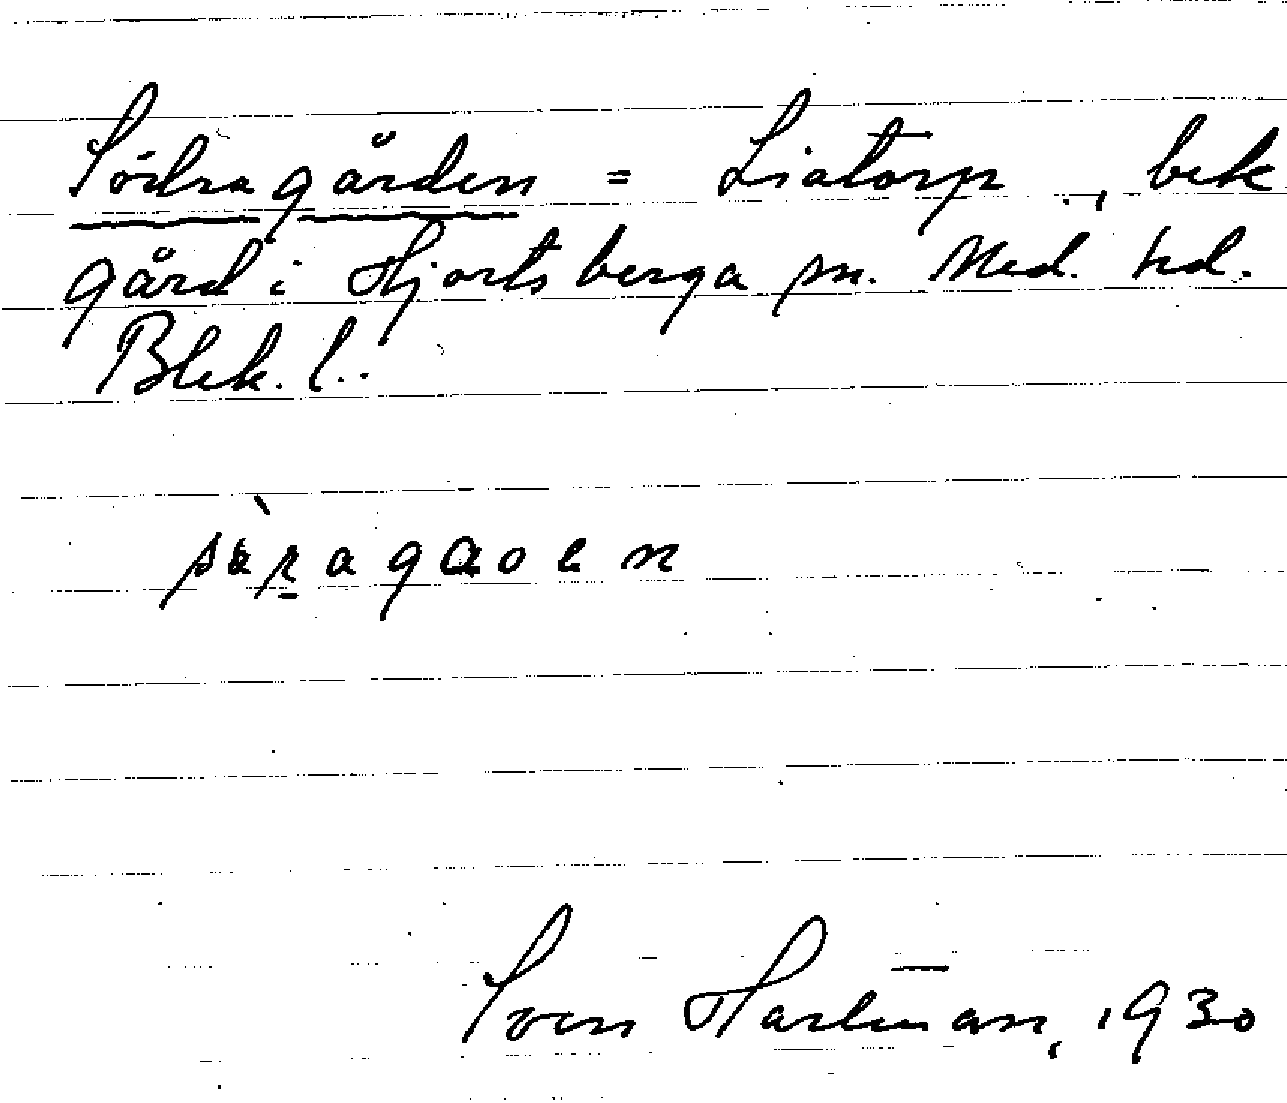 Södragården = Liatorp, bek.
gård i Hjortsberga sn. Med. hd.
Blek. l..
Sven Hartman, 1930